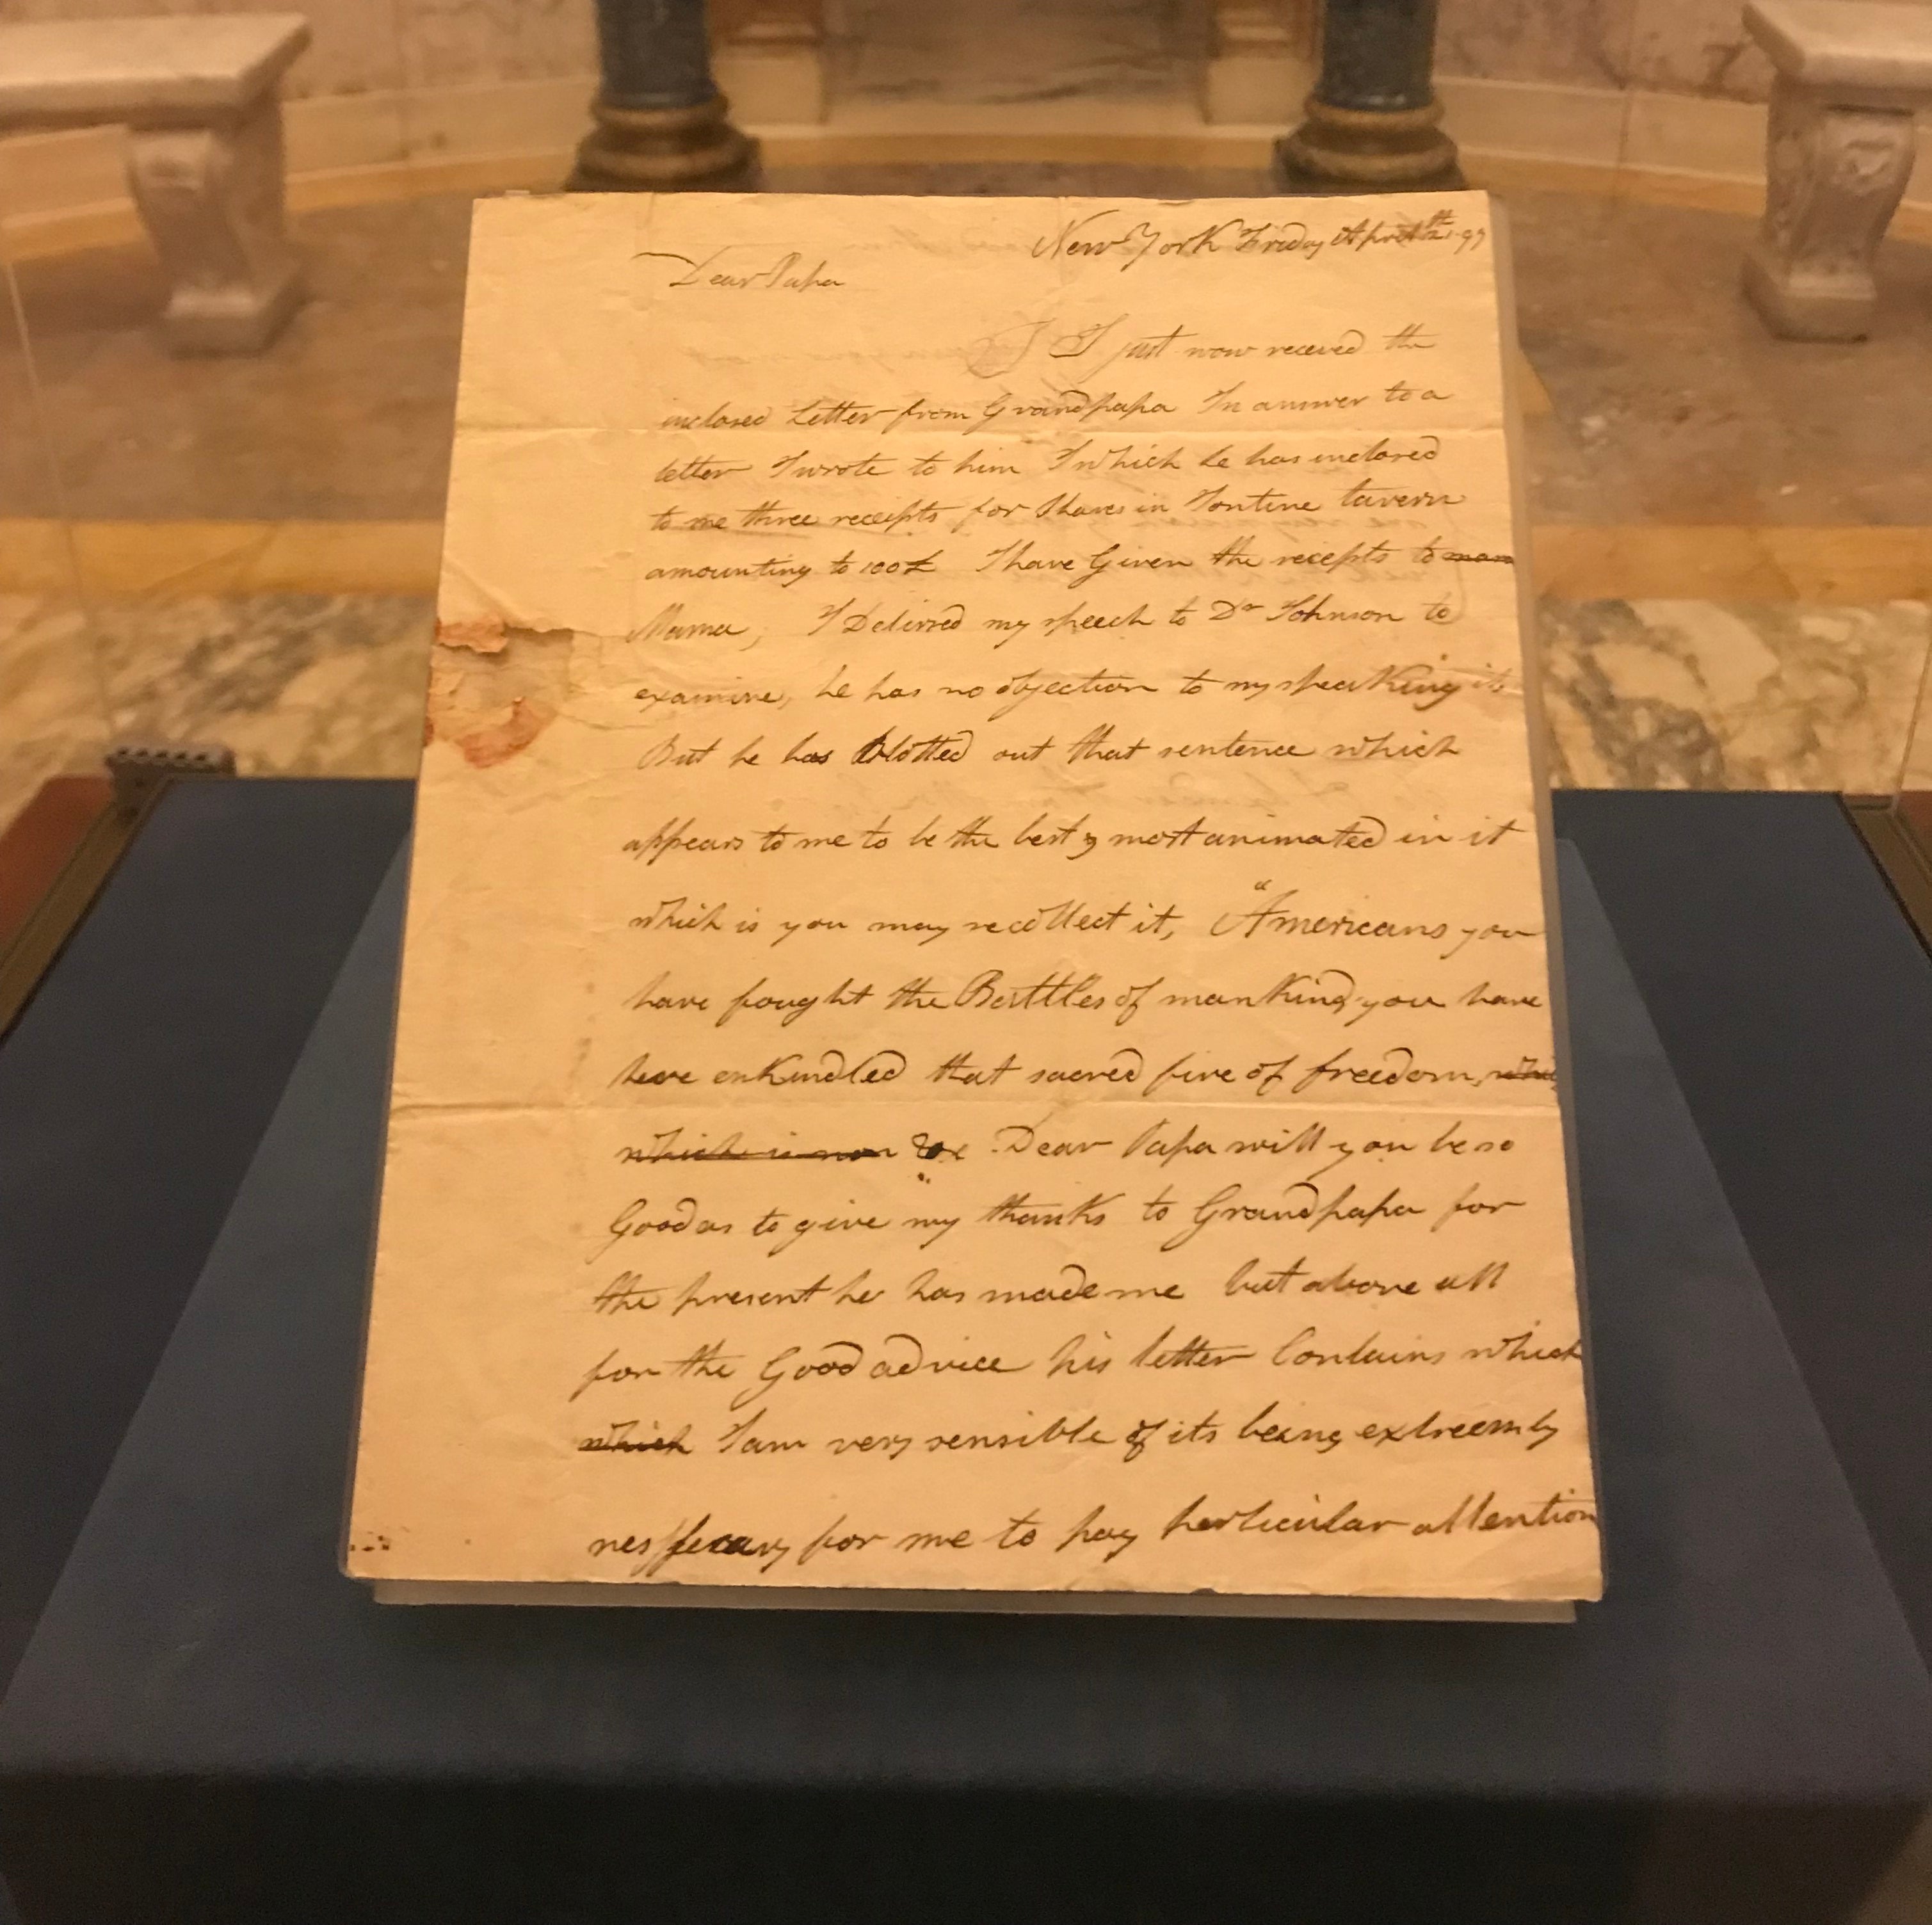 New York Friday April 97
Dear Papa
I just now receved the
inclosed Letter from Grandpapa In answer to a
letter I wrote to him In which he has inclosed
to me three receipts for Shares in Tontine tavern
amounting to 100£ I have Given the recepts to mam
Mama, I Delivred my speech to Dr Johnson to
examine, he has no objection to my speaking it
But he has Blotted out that sentence which
appears to me to be the best & most animated in it
which is you may recollect it, "Americans you
have fought the Battles of mankind you have
have enkindled that sacred fire of freedom, whi
which is now &c" Dear Papa will you be so
Good as to give my thanks to Grandpapa for
the present he has made me but above all
for the Good advice his letter Contains which
which I am very sensible of its being extreemly
nessecary for me to pay perticular attention